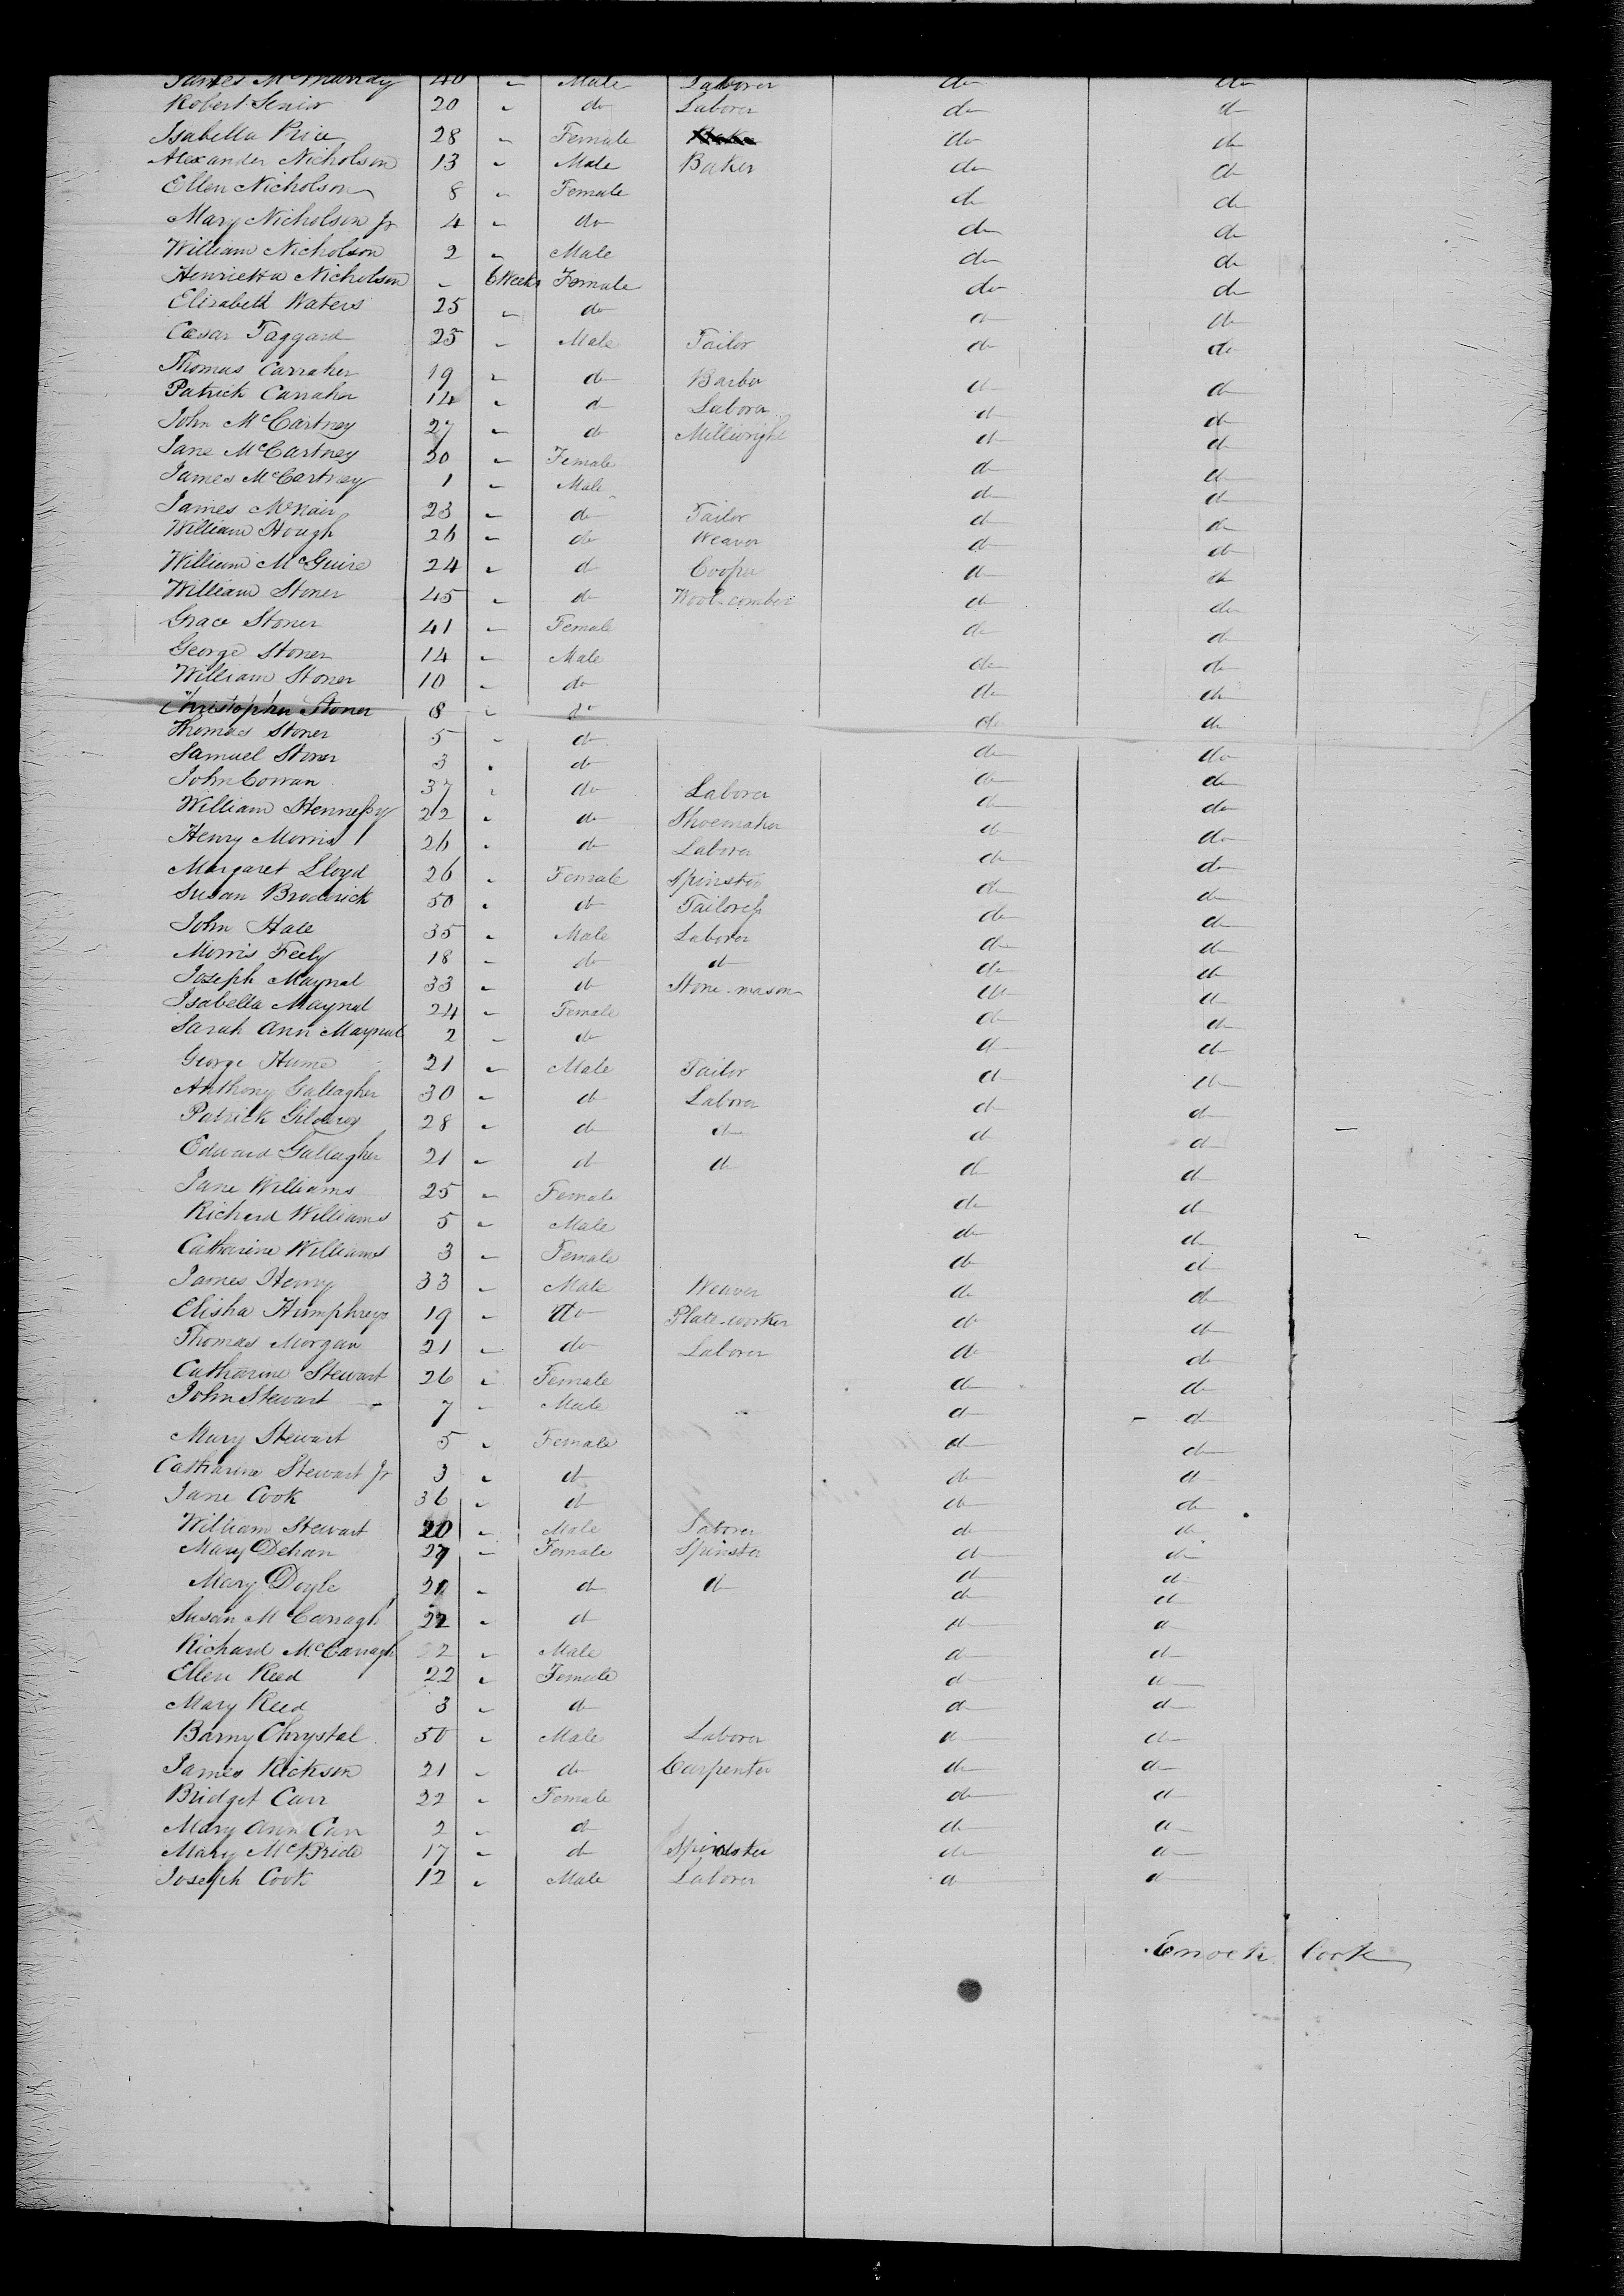 James McMurray 40 " Male Laborer do do
Robert Senior 20 " do Laborer do do
Isabella Price 28 " Female do do
Alexander Nicholson 13 " Male Baker do do
Ellen Nicholson 8 " Female do do
Mary Nicholson Jr 4 " do do do
William Nicholson 2 " Male do do
Henrietta Nicholson " 6 Weeks Female do do
Elisabeth Waters 25 " do do do
Cæsar Taggard 25 " Male Tailor do do
Thomas Carraher 19 " do Barber do do
Patrick Carraher 14 " do Laborer do do
John McCartney 27 " do Millwright do do
Jane McCartney 20 " Female do do
James McCartney 1 " Male do do
James McNair 23 " do Tailor do do
William Hough 26 " do Weaver do do
William McGuire 24 " do Cooper do do
William Stoner 45 " do Wool-comber do do
Grace Stoner 41 " Female do do
George Stoner 14 " Male do do
William Stoner 10 " do do do
Christopher Stoner 8 " do do do
Thomas Stoner 5 " do do do
Samuel Stoner 3 " do do do
John Cowan 37 " do Laborer do do
William Hennessy 22 " do Shoemaker do do
Henry Morris 26 " do Laborer do do
Margaret Lloyd 26 " Female Spinster do do
Susan Broderick 50 " do Tailoress do do
John Hale 35 " Male Laborer do do
Morris Feely 18 " do do do do
Joseph Maynal 33 " do Stone-mason do do
Isabella Maynal 24 " Female do do
Sarah Ann Maynal 2 " do do do
George Hume 21 " Male Tailor do do
Anthony Gallagher 30 " do Laborer do do
Patrick Gilderoy 28 " do do do do
Edward Gallagher 21 " do do do do
Jane Williams 25 " Female do do
Richard Williams 5 " Male do do
Catharine Williams 3 " Female do do
James Henry 33 " Male Weaver do do
Elisha Humphreys 19 " do Plate-worker do do
Thomas Morgan 21 " do Laborer do do
Catharine Stewart 26 " Female do do
John Stewart 7 " Male do do
Mary Stewart 5 " Female do do
Catharine Stewart Jr 3 " do do do
Jane Cook 36 " do do do
William Stewart 20 " Male Laborer do do
Mary Dehan 27 " Female Spinster do do
Mary Doyle " do do do do
Susan McCarragh 22 " do do do
Richard McCarragh 2 " Male do do
Ellen Reed 22 " Female do do
Mary Reed 3 " do do do
Barny Chrystal 50 " Male Laborer do do
James Rickson 21 " do Carpenter do do
Bridget Carr 22 " Female do do
Mary Ann Carr 2 " do do do
Mary McBride 17 " do Spinster do do
Joseph Cook 12 " Male Laborer do do
Enoch Cook